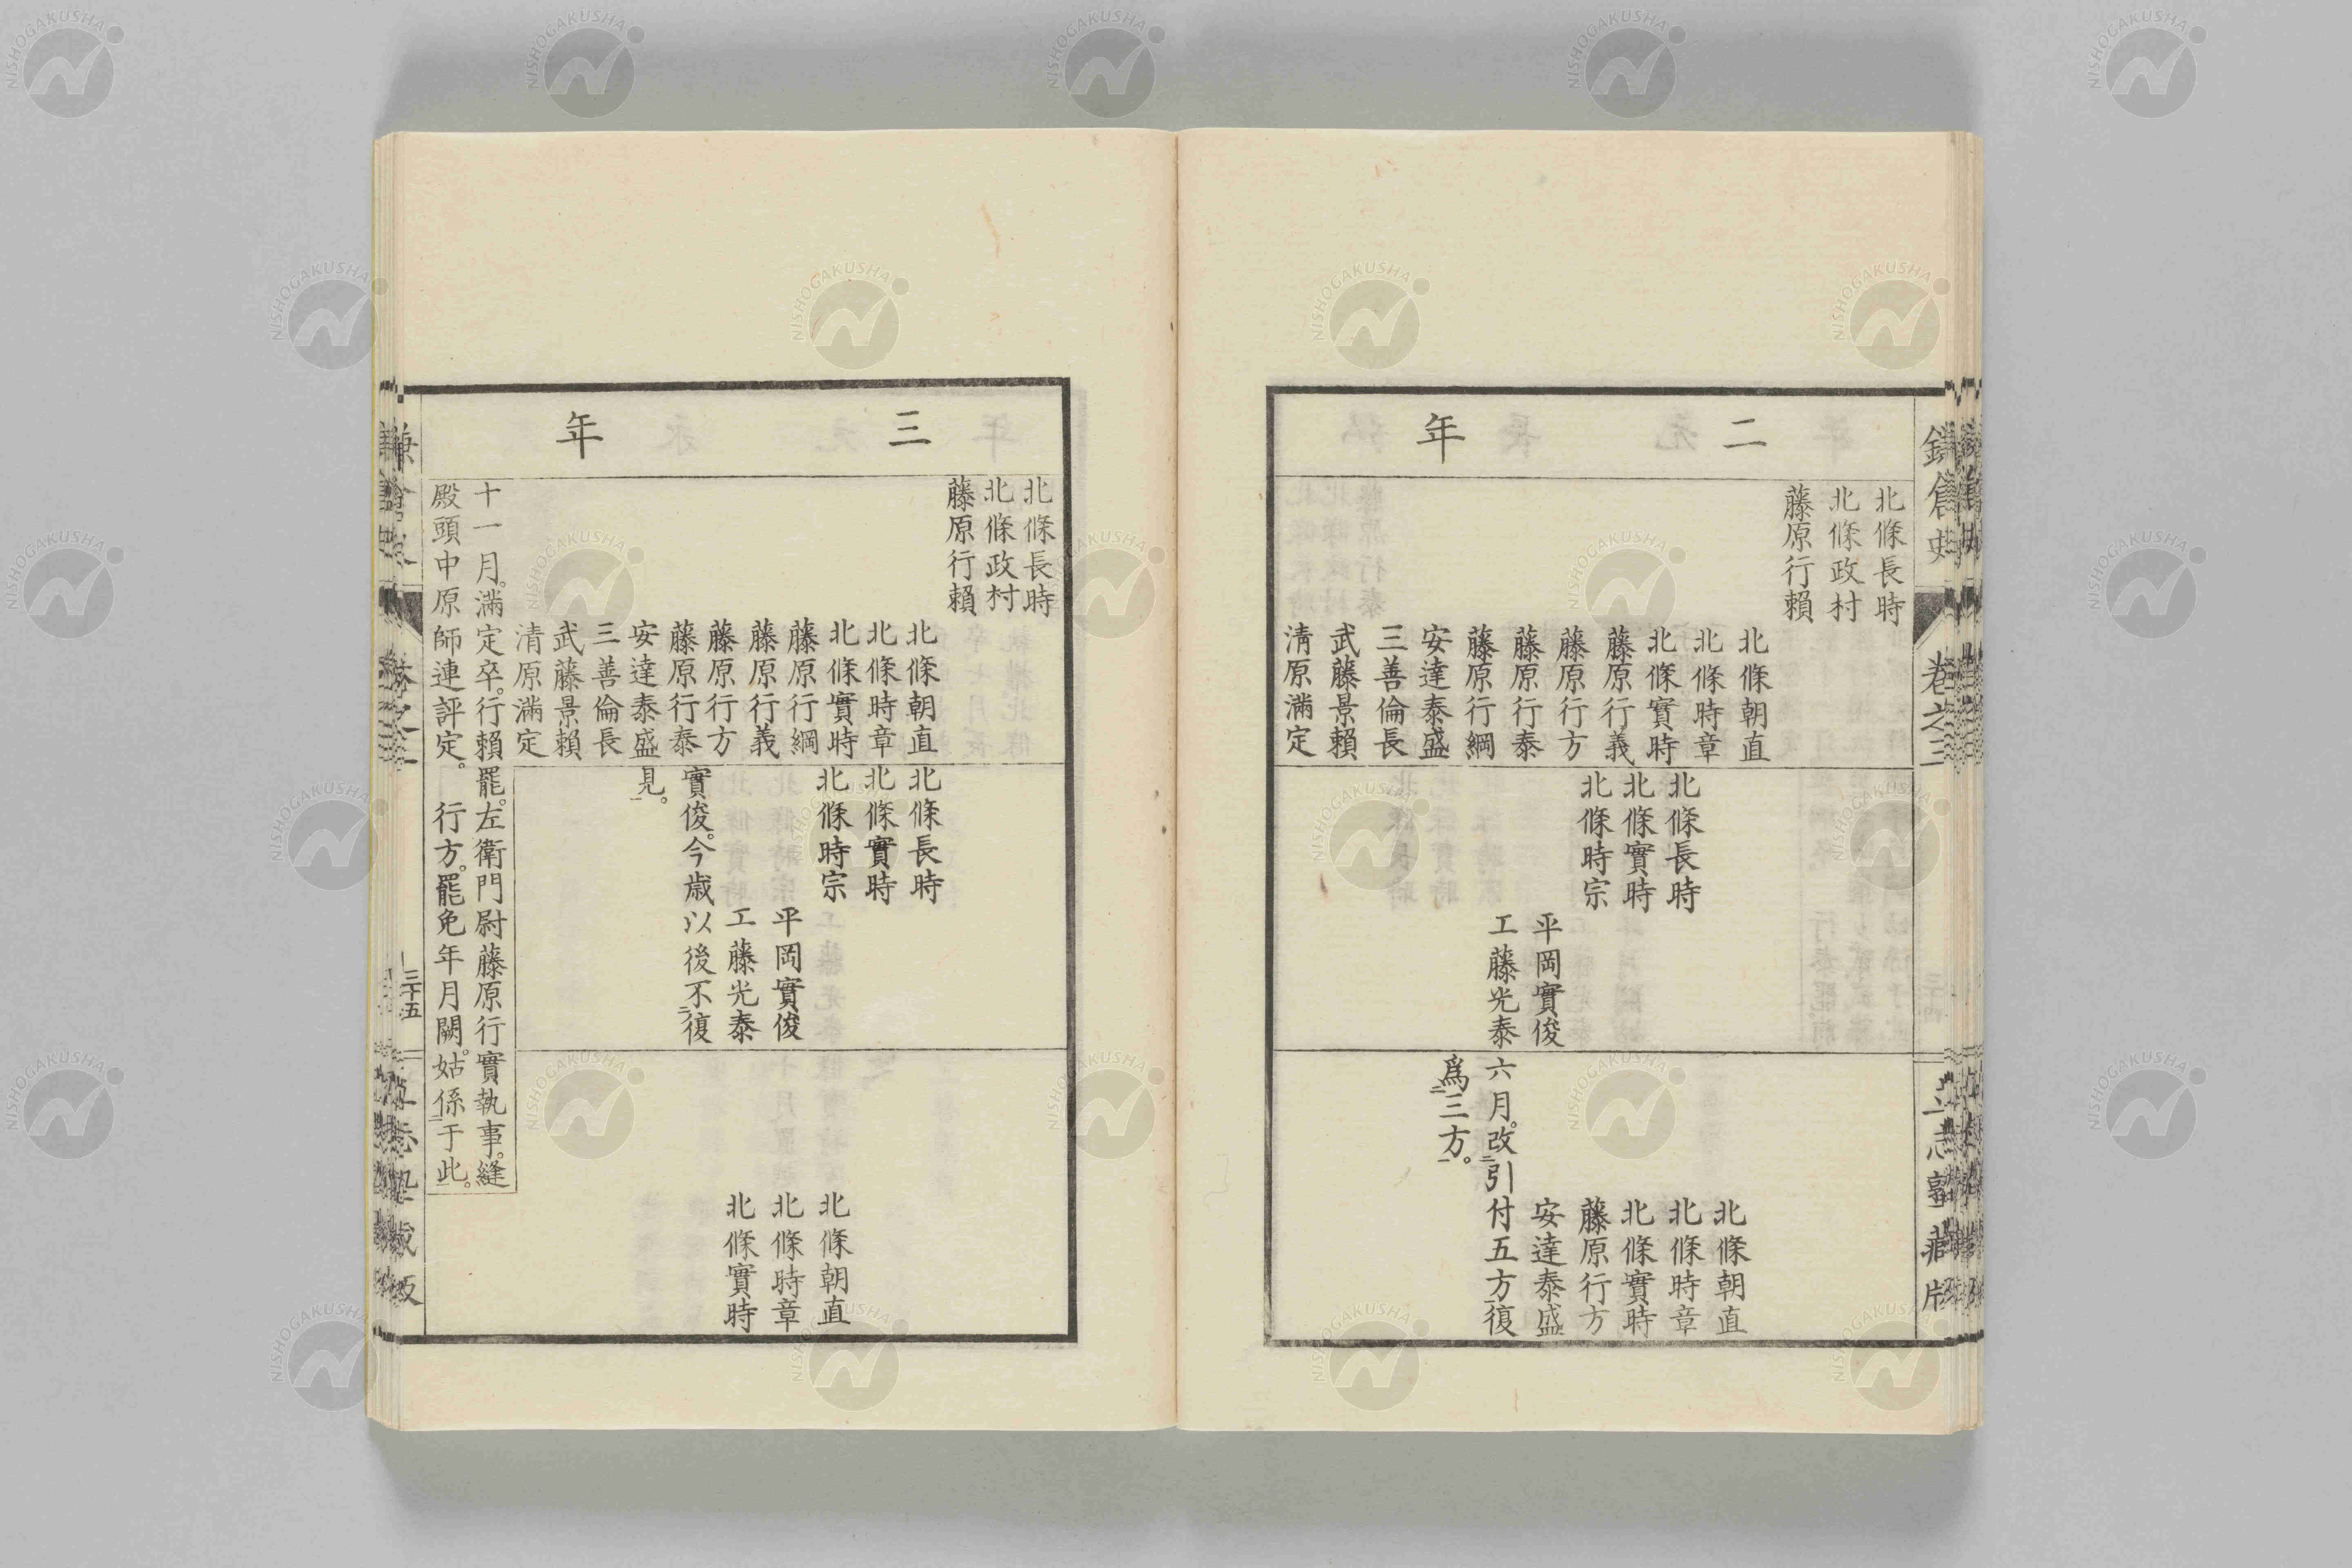 二年
北條長時
北條政村
藤原行賴
北條朝直
北條時章
北條實時
藤原行義
藤原行方
藤原行泰
藤原行綱
安達泰盛
三善倫長
武藤景賴
淸原滿定
北條長時
北條實時
北條時宗
平岡實俊
工藤光泰
六月。改引付五方復
爲三方。
北條朝直
北條時章
北條實時
藤原行方
安達泰盛
三年
北條長時
北條政村
藤原行賴
北條朝直
北條時章
北條實時
藤原行綱
藤原行義
藤原行方
藤原行泰
安達泰盛
三善倫長
武藤景賴
清原滿定
北條長時
北條實時
北條時宗
平岡實俊
工藤光泰
實俊。今歲以後不復
見。
北條朝直
北條時章
北條實時
十一月。滿定卒。行賴罷。左衛門尉藤原行實執事。縫
殿頭中原師連評定。行方。罷免年月闕。姑係于此。
卷之三
三十五
NISHOGAKUSHA